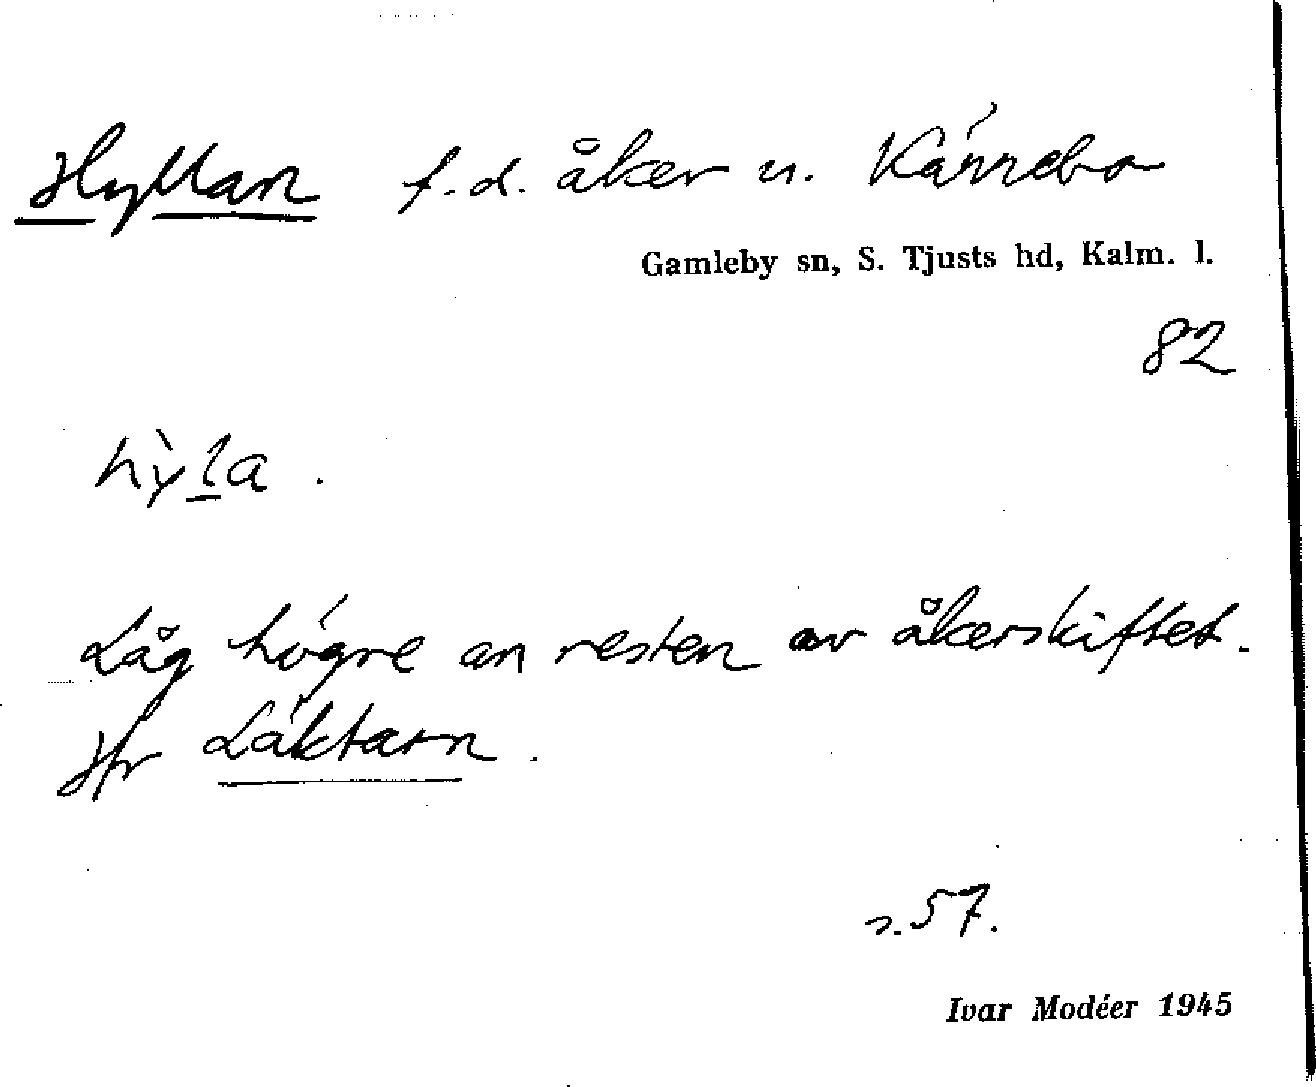 Hyllan f.d. åker u. Kärrebo
Gamleby sn, S. Tjusts hd, Kalm. l.
82
hỳl̲a .
Låg högre än resten av åkerskiftet.
Jfr Läktarn.
s. 57.
Ivar Modéer 1945